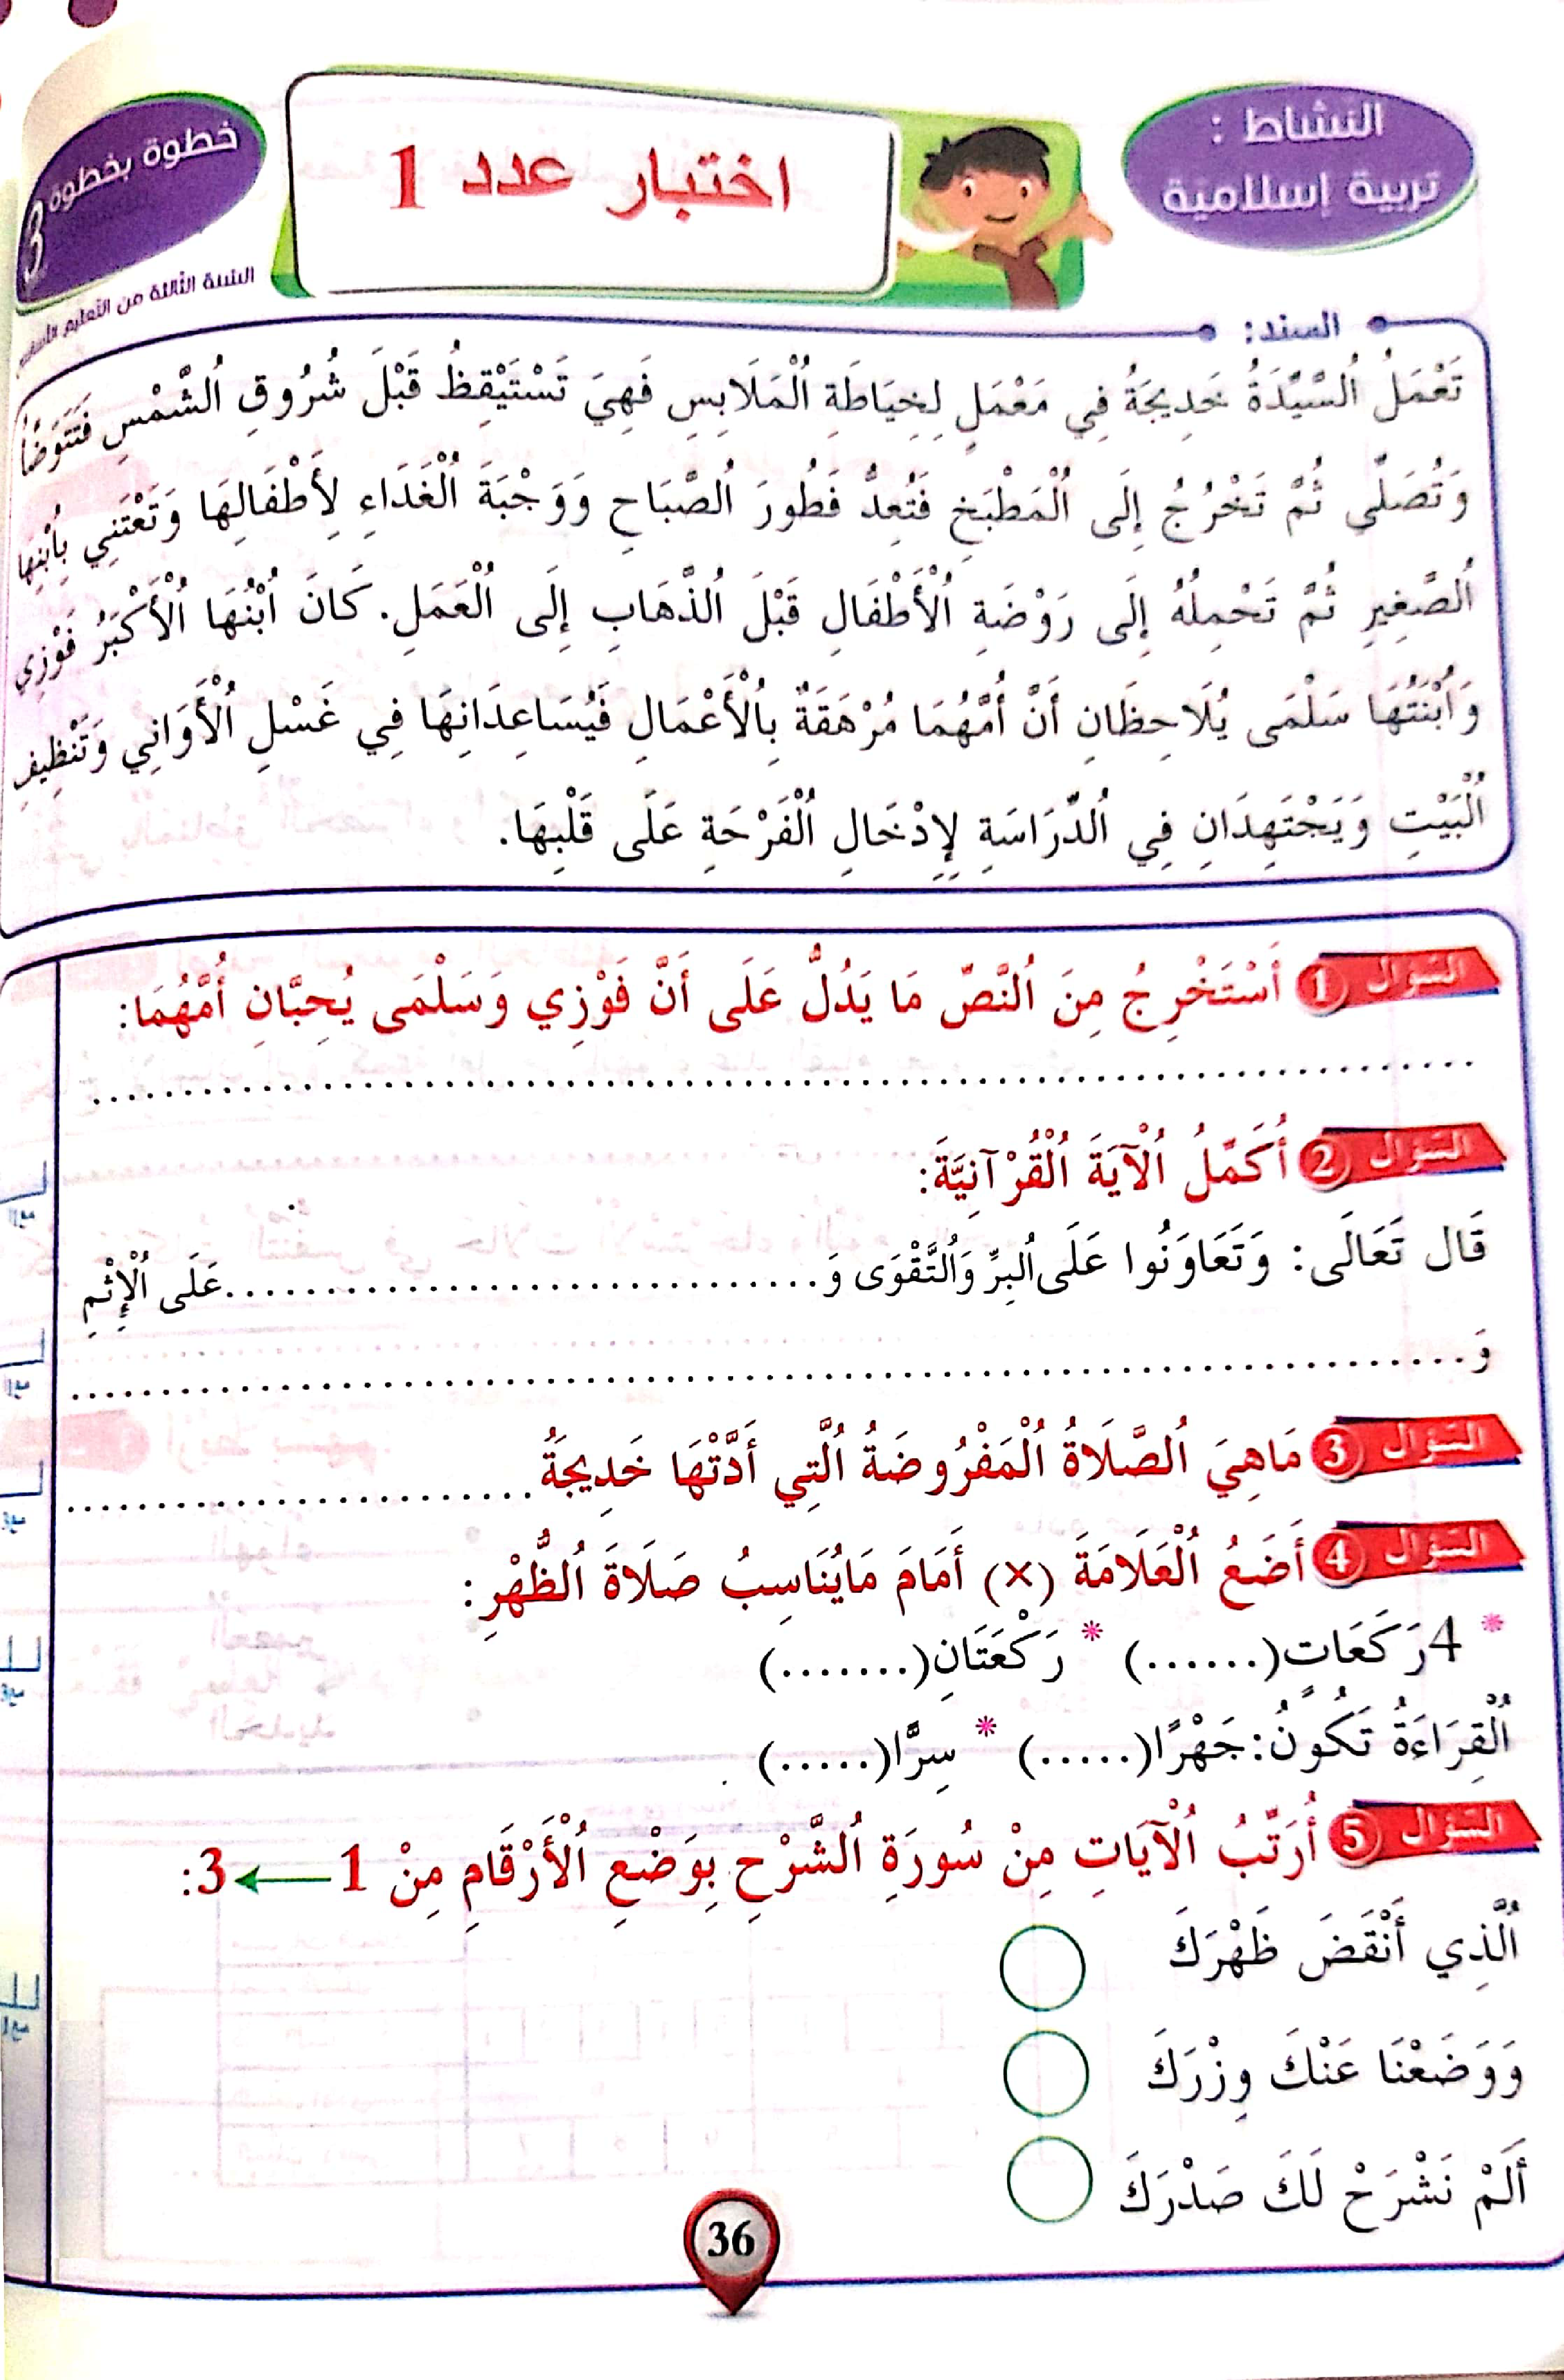 النشاط :
تربية إسلامية
اختبار عدد 1
خطوة بخطوة
3
السنة الثالثة من التعليم
السند:
تَعْمَلُ السَّيِّدَةُ خَدِيجَةُ فِي مَعْمَلٍ لِخِيَاطَةِ الْمَلَابِسِ فَهِيَ تَسْتَيْقِظُ قَبْلَ شُرُوقِ الشَّمْسِ فَتَتَوَضَّأُ
وَتُصَلِّي ثُمَّ تَخْرُجُ إِلَى الْمَطْبَخِ فَتُعِدُّ فَطُورَ الصَّبَاحِ وَوَجْبَةَ الْغَدَاءِ لِأَطْفَالِهَا وَتَعْتَنِي بِابْنِهَا
الصَّغِيرِ ثُمَّ تَحْمِلُهُ إِلَى رَوْضَةِ الْأَطْفَالِ قَبْلَ الذَّهَابِ إِلَى الْعَمَلِ. كَانَ ابْنُهَا الْأَكْبَرُ فَوْزِي
وَابْنَتُهَا سَلْمَى يُلَاحِظَانِ أَنَّ أُمَّهُمَا مُرْهَقَةٌ بِالْأَعْمَالِ فَيُسَاعِدَانِهَا فِي غَسْلِ الْأَوَانِي وَتَنْظِيفِ
الْبَيْتِ وَيَجْتَهِدَانِ فِي الدِّرَاسَةِ لِإِدْخَالِ الْفَرْحَةِ عَلَى قَلْبِهَا.
السؤال 1 أَسْتَخْرِجُ مِنَ النَّصِّ مَا يَدُلُّ عَلَى أَنَّ فَوْزِي وَسَلْمَى يُحِبَّانِ أُمَّهُمَا:
السؤال 2 أُكَمِّلُ الْآيَةَ الْقُرْآنِيَّةَ:
قَال تَعَالَى: وَتَعَاوَنُوا عَلَى الْبِرِّ وَالتَّقْوَى وَ..............................عَلَى الْإِثْمِ
وَ..............................
السؤال 3 مَاهِيَ الصَّلَاةُ الْمَفْرُوضَةُ الَّتِي أَدَّتْهَا خَدِيجَةُ..............................
السؤال 4 أَضَعُ الْعَلَامَةَ (×) أَمَامَ مَايُنَاسِبُ صَلَاةَ الظُّهْرِ:
* 4 رَكَعَاتٍ(......) * رَكْعَتَانِ(.......)
الْقِرَاءَةُ تَكُونُ: جَهْرًا(.....) * سِرًّا(.....)
السؤال 5 أُرَتِّبُ الْآيَاتِ مِنْ سُورَةِ الشَّرْحِ بِوَضْعِ الْأَرْقَامِ مِنْ 1 ← 3:
الَّذِي أَنْقَضَ ظَهْرَكَ
وَوَضَعْنَا عَنْكَ وِزْرَكَ
أَلَمْ نَشْرَحْ لَكَ صَدْرَكَ
36